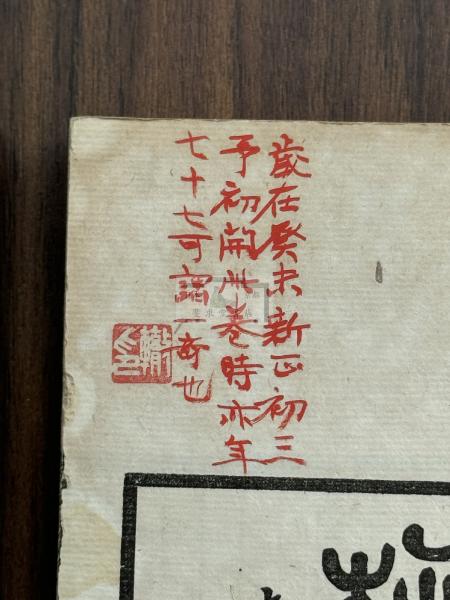 歲在癸未新正初三
予初開此卷時亦年
七十七可謂一奇也